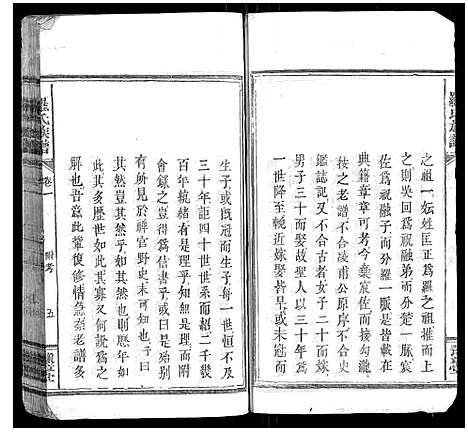 之祖一妘姓匡正爲羅之祖推而上
之則吳回爲祝融弟而分楚一脈宸
佐爲祝融子而分羅一脈是皆載在
典籍章章可考今彙宸佐而接勾瀧
按之老譜不合凌甫公原序不合史
鑑誌記又不合古者女子二十而嫁
男子三十而娶故聖人以三十年爲
一世降至晚近嫁娶皆早或未冠而
生子或既冠而生子每一世恒不及
三十年距四十世世系而紹二千幾
百年統緒有是理乎知無是理而附
會錄之豈得爲信書乎或曰是殆別
有所見於禆官野史未可知也予曰
其然豈其然乎如其然也則歷年如
此其多歷世如此其寡又何說爲之
解也吾意此輩復修情急奈老譜多
羅氏族譜
卷一
附考
五
羅氏族譜